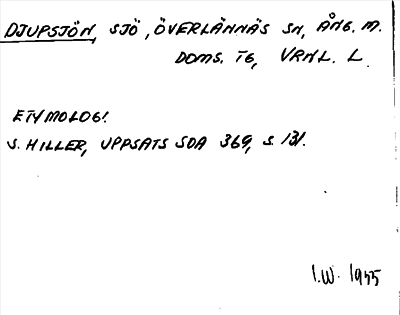 DJUPSJÖN, SJÖ, ÖVERLÄNNÄS SN, ÅNG. M.
DOMS. TG, VRNL. L.
ETYMOLOGI
S. HILLER, UPPSATS SOA 369, S. 131.
I.W. 1955